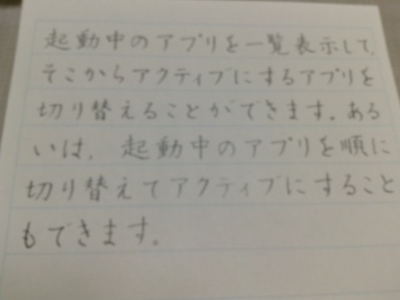 起動中のアプリを一覧表示して、
そこからアクティブにするアプリを
切り替えることができます。ある
いは、起動中のアプリを順に
切り替えてアクティブにすること
もできます。